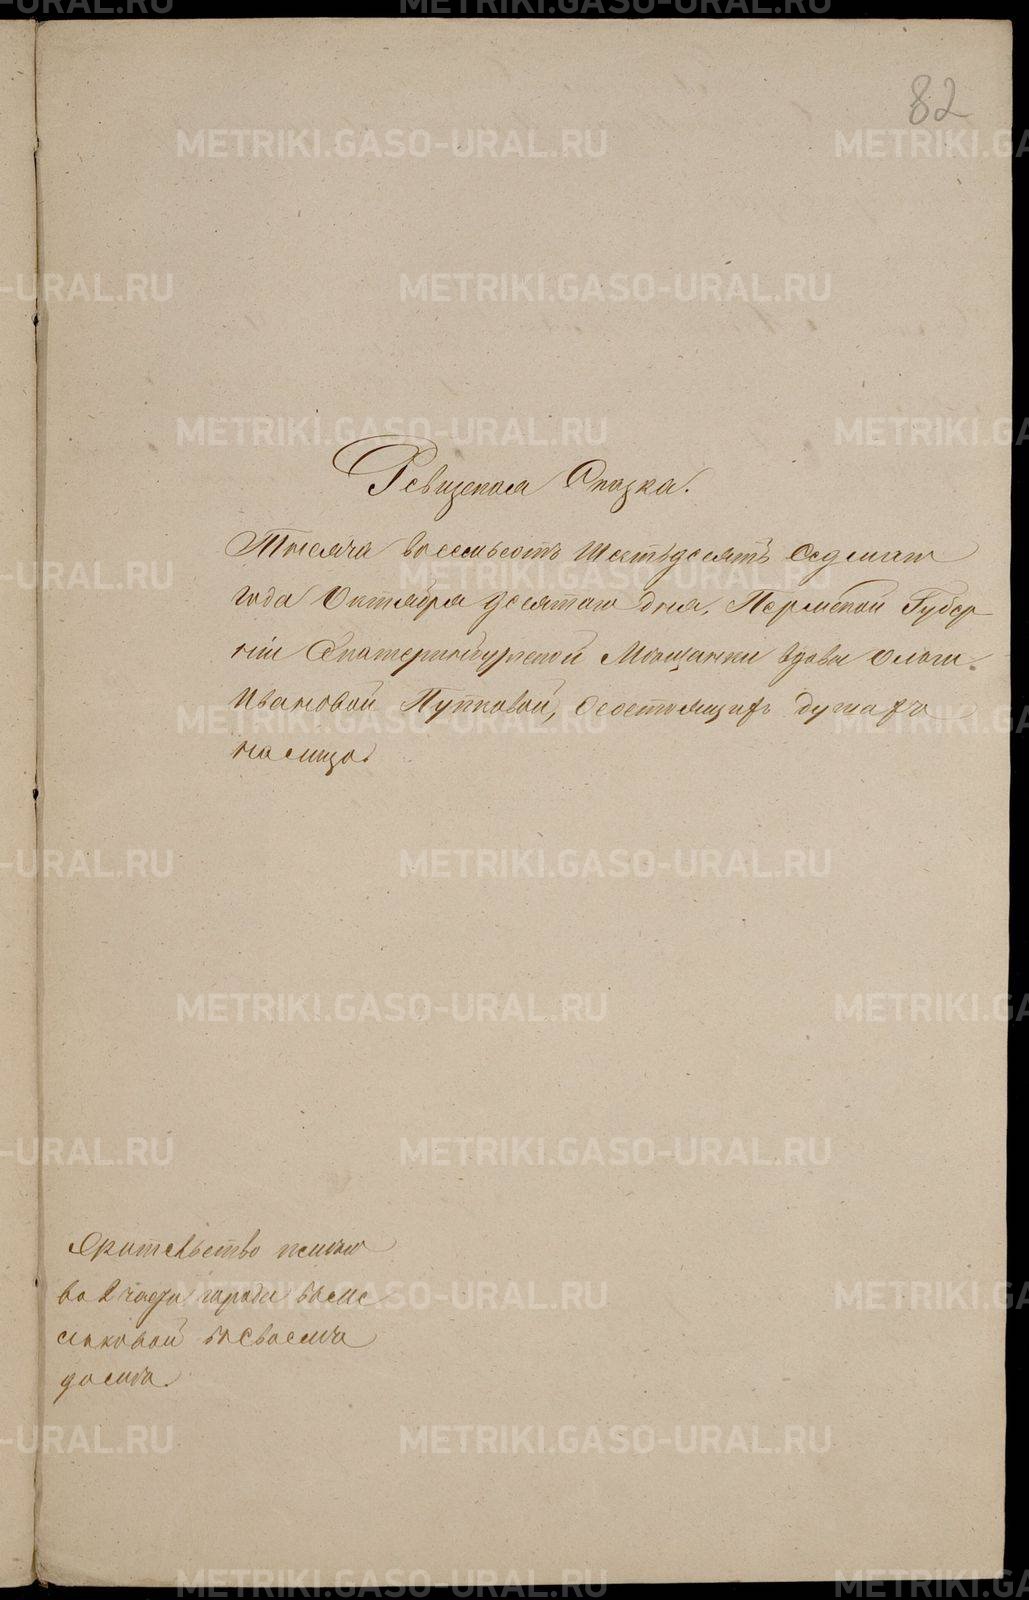 82
Ревизская Сказка.
Тысяча восемьсотъ Шестьдесятъ Седмаго
года Октября десятаго дня, Пермской Губер
ніи Екатеринбургской Мѣщанки вдовы Ольги
Ивановой Пупковой, о состоящихъ душахъ
на лицо.
Жительство имѣю
во 2 части города
въ своемъ
домѣ.
METRIKI.GASO-URAL.RU